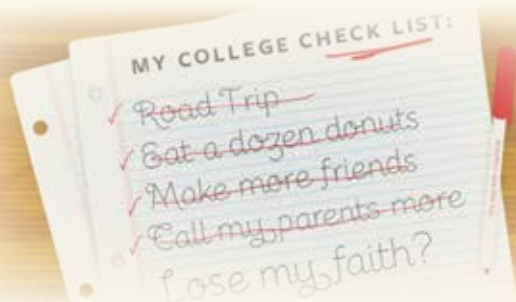 MY COLLEGE CHECK LIST:
Road Trip
Eat a dozen donuts
Make more friends
Call my parents more
Lose my faith?